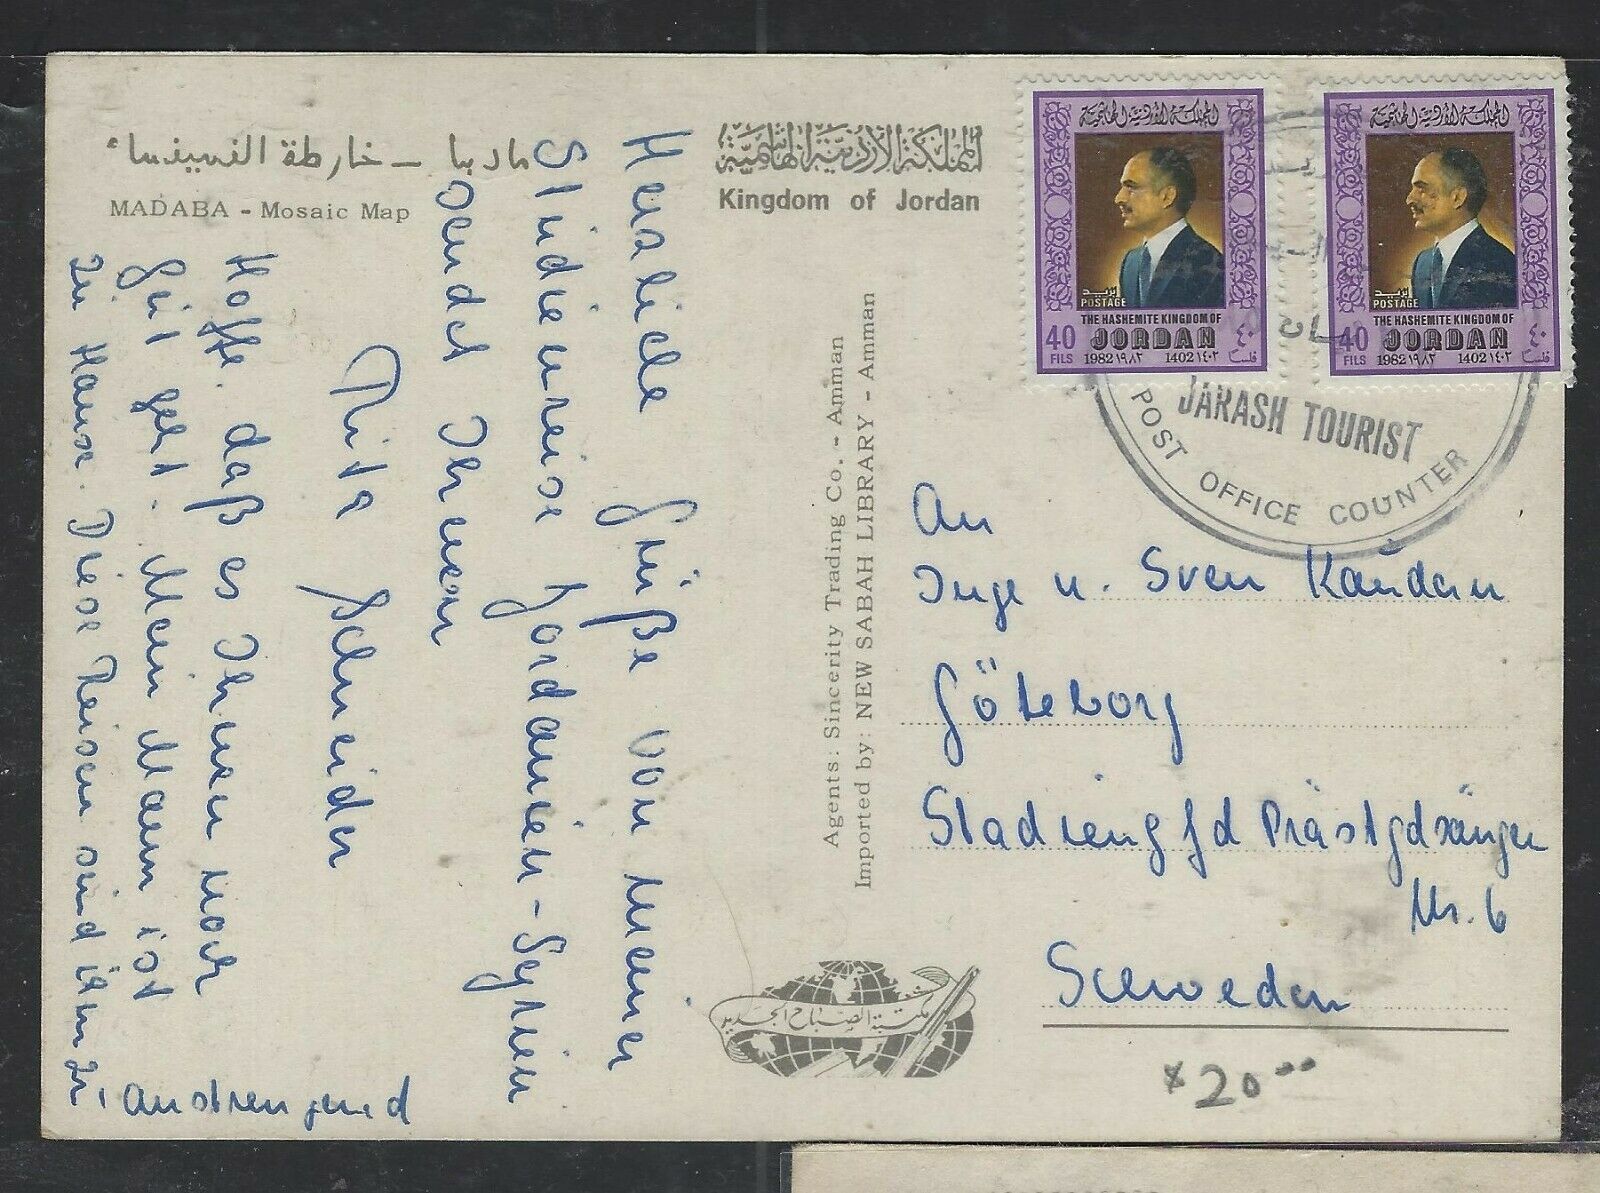 مادبا – خارطة الفسيفساء
MADABA - Mosaic Map
المملكة الأردنية الهاشمية
Kingdom of Jordan
Herzliche Grüße von meiner
Studienreise Jordanien-Syrien
sendet Ihnen
Rita Schneider
Hoffe, daß es Ihnen noch
gut geht. Mein Mann ist
zu Hause. Diese Reisen sind ihm zu
anstrengend
Agents: Sincerity Trading Co. - Amman
Imported by: NEW SABAH LIBRARY - Amman
مكتبة الصباح الجديد
المملكة الأردنية الهاشمية
بريد
POSTAGE
THE HASHEMITE KINGDOM OF
40 JORDAN ٤٠
FILS 1982 ١٩٨٢ 1402 ١٤٠٢ فلسا
المملكة الأردنية الهاشمية
بريد
POSTAGE
THE HASHEMITE KINGDOM OF
40 JORDAN ٤٠
FILS 1982 ١٩٨٢ 1402 ١٤٠٢ فلسا
JARASH TOURIST
POST OFFICE COUNTER
An
Inge u. Sven
Göteborg
Nr. 6
Schweden
x 20.00